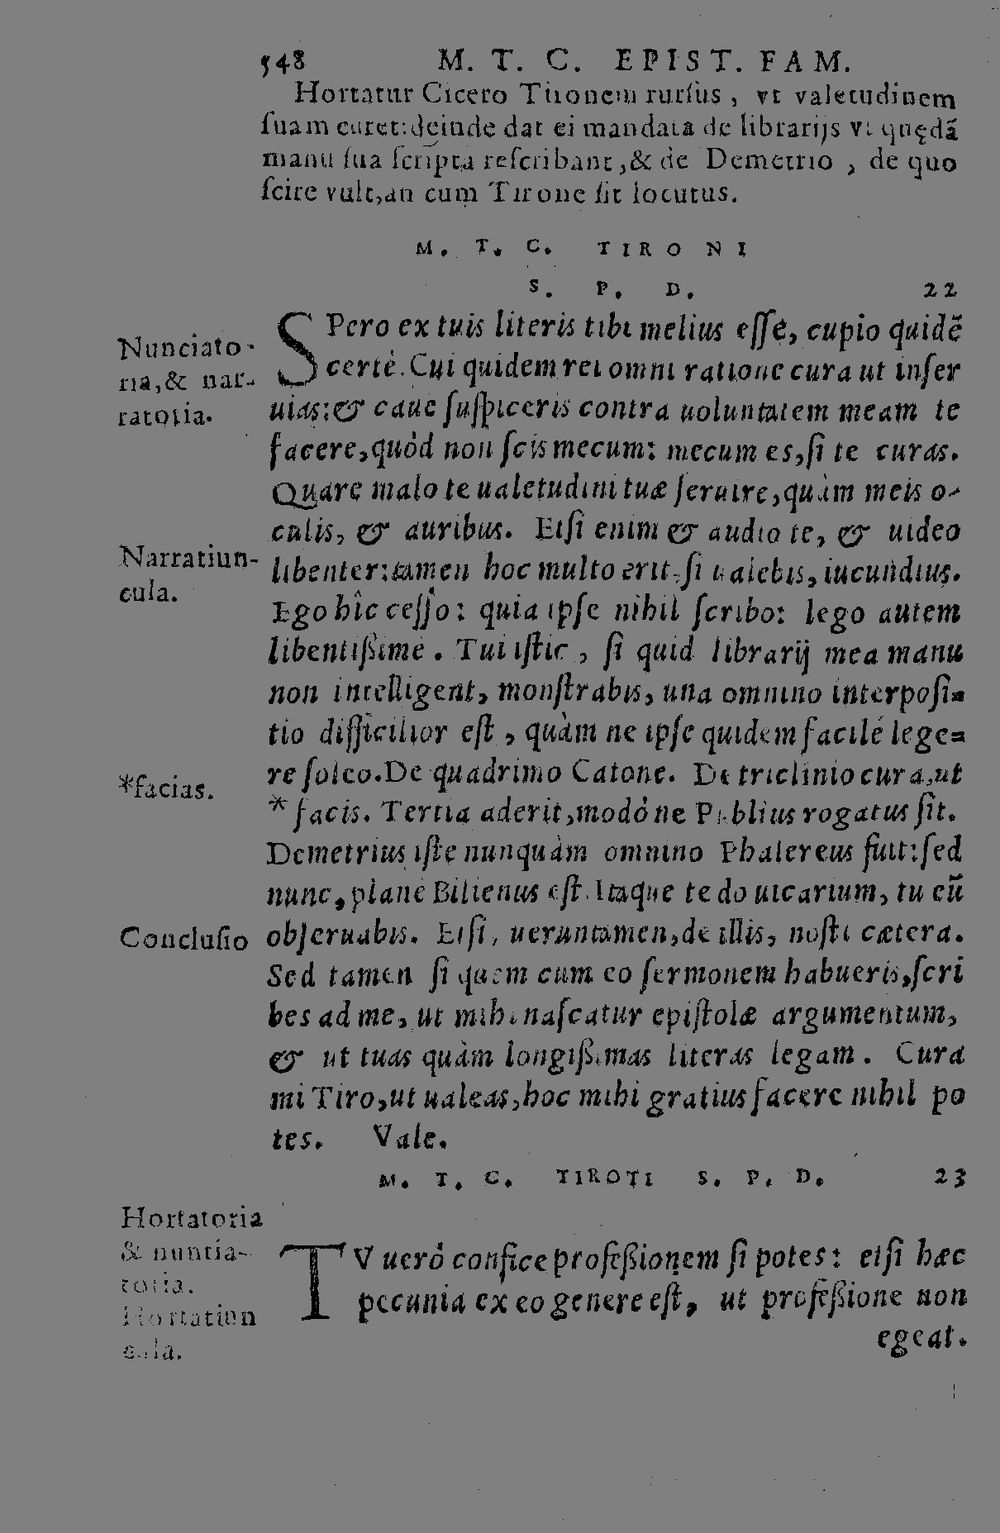 548 M. T. C. EPIST. FAM.
Hortatur Cicero Tironem rursus, vt valetudinem
suam curet: deinde dat ei mandata de librarijs vt quędã
manu sua scripta rescribant, & de Demetrio, de quo
scire vult, an cum Tirone sit locutus.
M. T. C. TIRONI
S. P. D. 22
Nunciato-
ria, & nar-
ratoria.
SPero ex tuis literis tibi melius esse, cupio quidẽ
certè. Cui quidem rei omni ratione cura ut inser
uias: & caue suspiceris contra uoluntatem meam te
facere, quòd non scis mecum: mecum es, si te curas.
Quare malo te ualetudini tuæ seruire, quàm meis o-
culis, & auribus. Etsi enim & audio te, & uideo
Narratiun-
cula.
libenter: tamen hoc multo erit, si ualebis, iucundius.
Ego hîc cesso: quia ipse nihil scribo: lego autem
libentißime. Tu istic, si quid librarij mea manu
non intelligent, monstrabis, una omnino interposi-
tio difficilior est, quàm ne ipse quidem facilè lege-
re soleo. De quadrimo Catone. De triclinio cura, ut
*facias.
* facis. Tertia aderit, modò ne Publius rogatus sit.
Demetrius iste nunquàm omnino Phalereus fuit: sed
nunc, planè Bilienus est. Itaque te do uicarium, tu eũ
Conclusio
obseruabis. Etsi, ueruntamen, de illis, nosti cætera.
Sed tamen si quem cum eo sermonem habueris, scri
bes ad me, ut mihi nascatur epistolæ argumentum,
& ut tuas quàm longißimas literas legam. Cura
mi Tiro, ut ualeas, hoc mihi gratius facere nihil po
tes. Vale.
M. T. C. TIROTI S. P. D. 23
Hortatoria
& nuntia-
toria.
Hortatiun
cula.
TV uerò confice profeßionem si potes: etsi hæc
pecunia ex eo genere est, ut profeßione non
egeat.